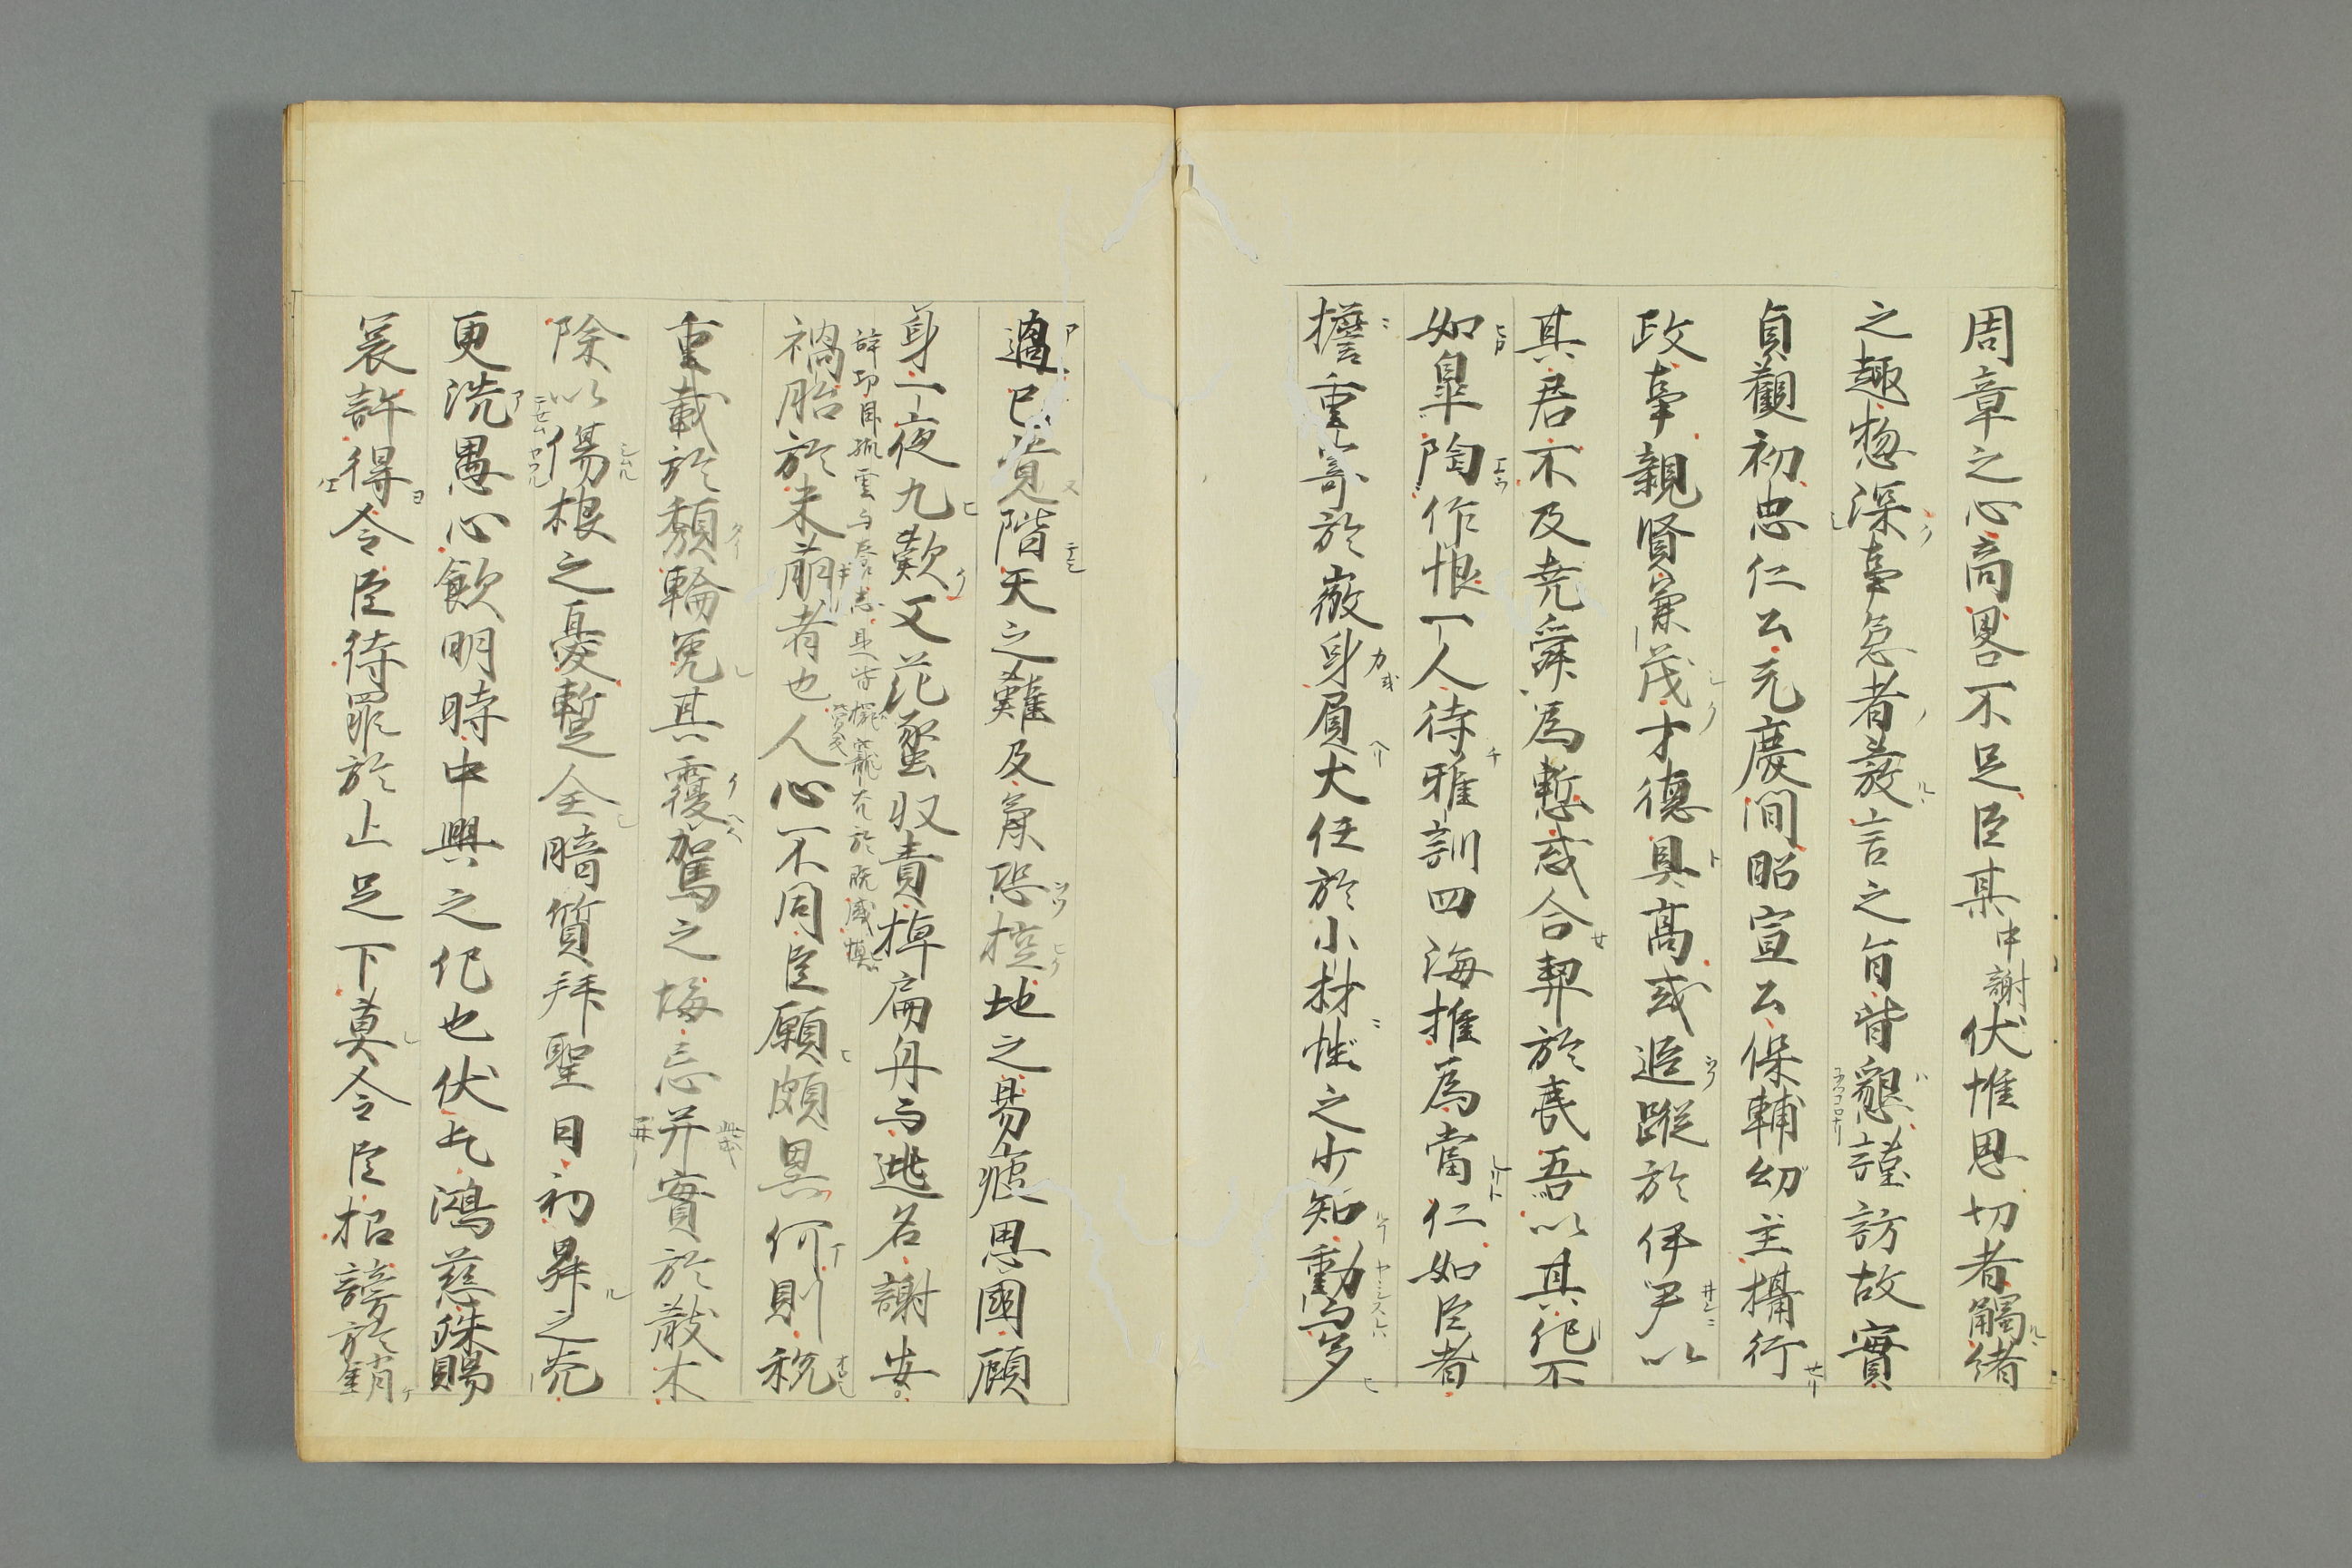 周章之心商畧不足臣某中謝伏惟恩切者觸緒
之趣愁深事忽者蕟言之旨皆懇謹訪故實
貞觀初忠仁公元慶間昭宣公保輔幼主攝行
政事親賢兼茂才德具高或追蹤於伊尹以
其君不及堯舜爲慙或合契於喪吾以其化不
如皐陶作恨一人待雅訓四海推爲當仁如臣者
擔重寄於微身屓大任於小材性之少知動与多
過已覺階天之難及第恐控地之易疲思國顧
身一夜九歎文花蜜収責棹扁舟与逃名謝安
辭印目孤雲与養志是皆
禍胎於未萠者也人心不同臣願頗異何則税
重載於頽輪免其覆駕之悔忘并實於散木
除以傷根之憂暫全暗質拜聖日初昇之光
更洗愚心飲明時中興之化也伏乞鴻慈殊賜
冪許得令臣待罪於止足下莫令臣招謗於銷